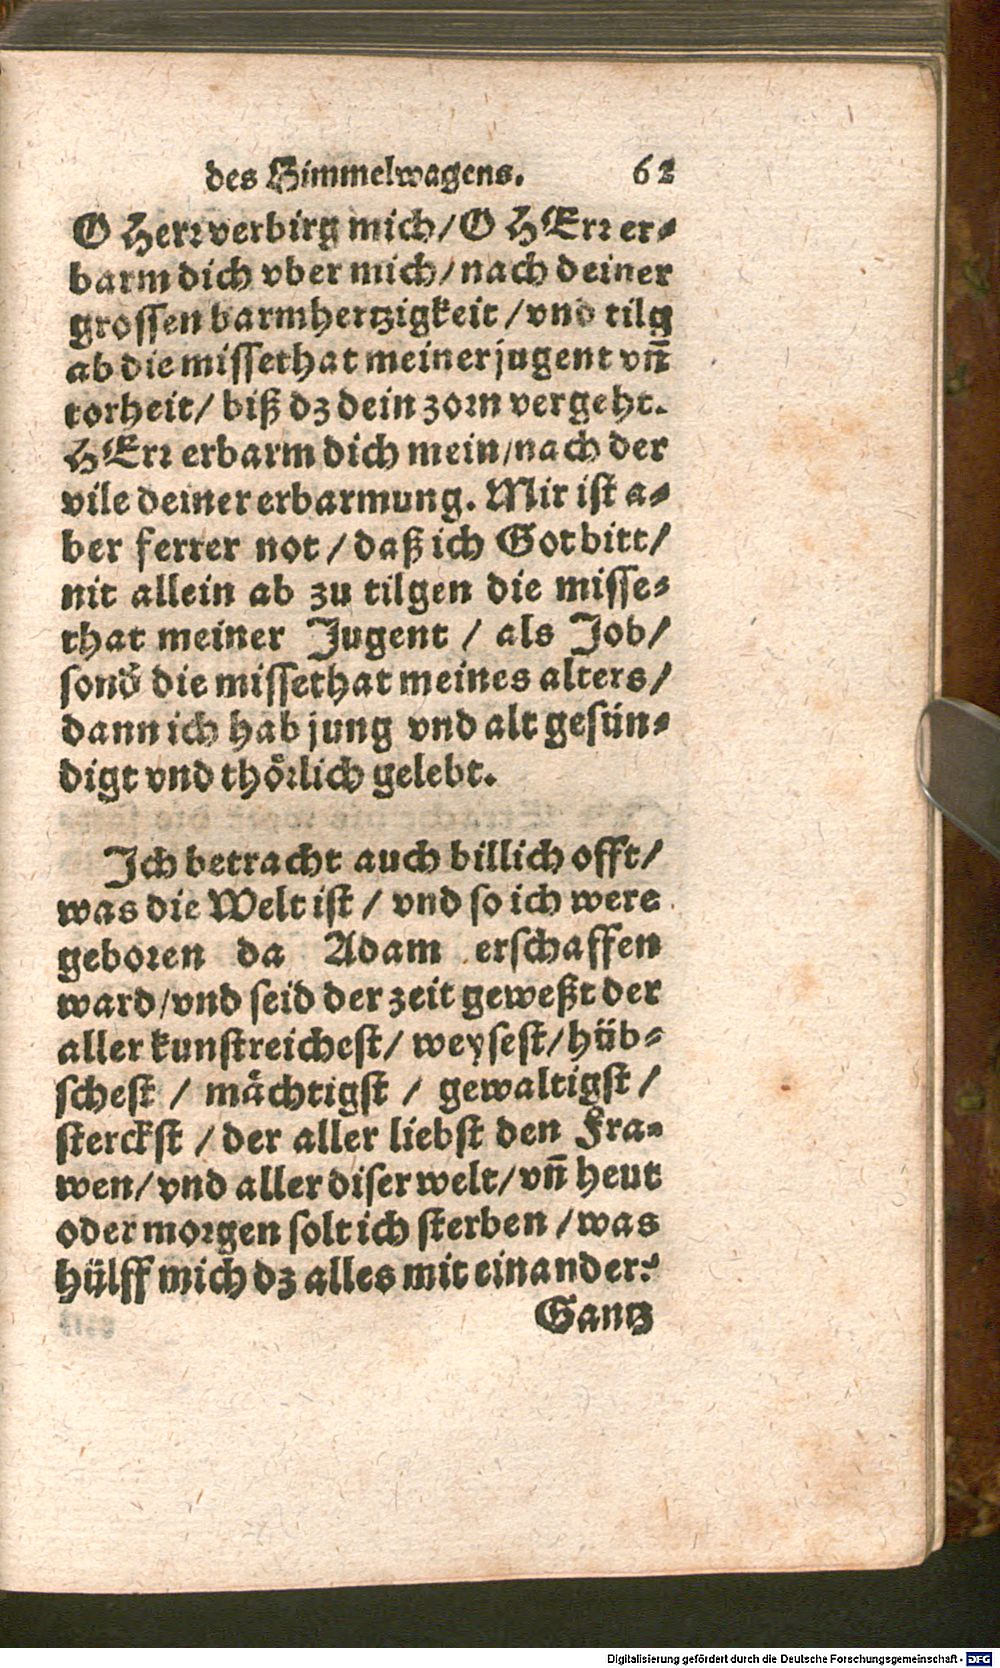 des Himmelwagens. 62
O Herr verbirg mich/ O HErr er-
barm dich vber mich/ nach deiner
grossen barmhertzigkeit/ vnd tilg
ab die missethat meiner jugent vn̄
torheit/ biß dz dein zorn vergeht.
HErr erbarm dich mein/ nach der
vile deiner erbarmung. Mir ist a-
ber ferrer not/ daß ich Got bitt/
nit allein ab zu tilgen die misse-
that meiner Jugent/ als Job/
sond̕ die missethat meines alters/
dann ich hab jung vnd alt gesün-
digt vnd thörlich gelebt.
Ich betracht auch billich offt/
was die Welt ist/ vnd so ich were
geboren da Adam erschaffen
ward/ vnd seid der zeit geweßt der
aller kunstreichest/ weysest/ hüb-
schest/ mächtigst/ gewaltigst/
sterckst/ der aller liebst den Fra-
wen/ vnd aller diser welt/ vn̄ heut
oder morgen solt ich sterben/ was
hülff mich dz alles mit einander?
Gantz
Digitalisierung gefördert durch die Deutsche Forschungsgemeinschaft - DFG